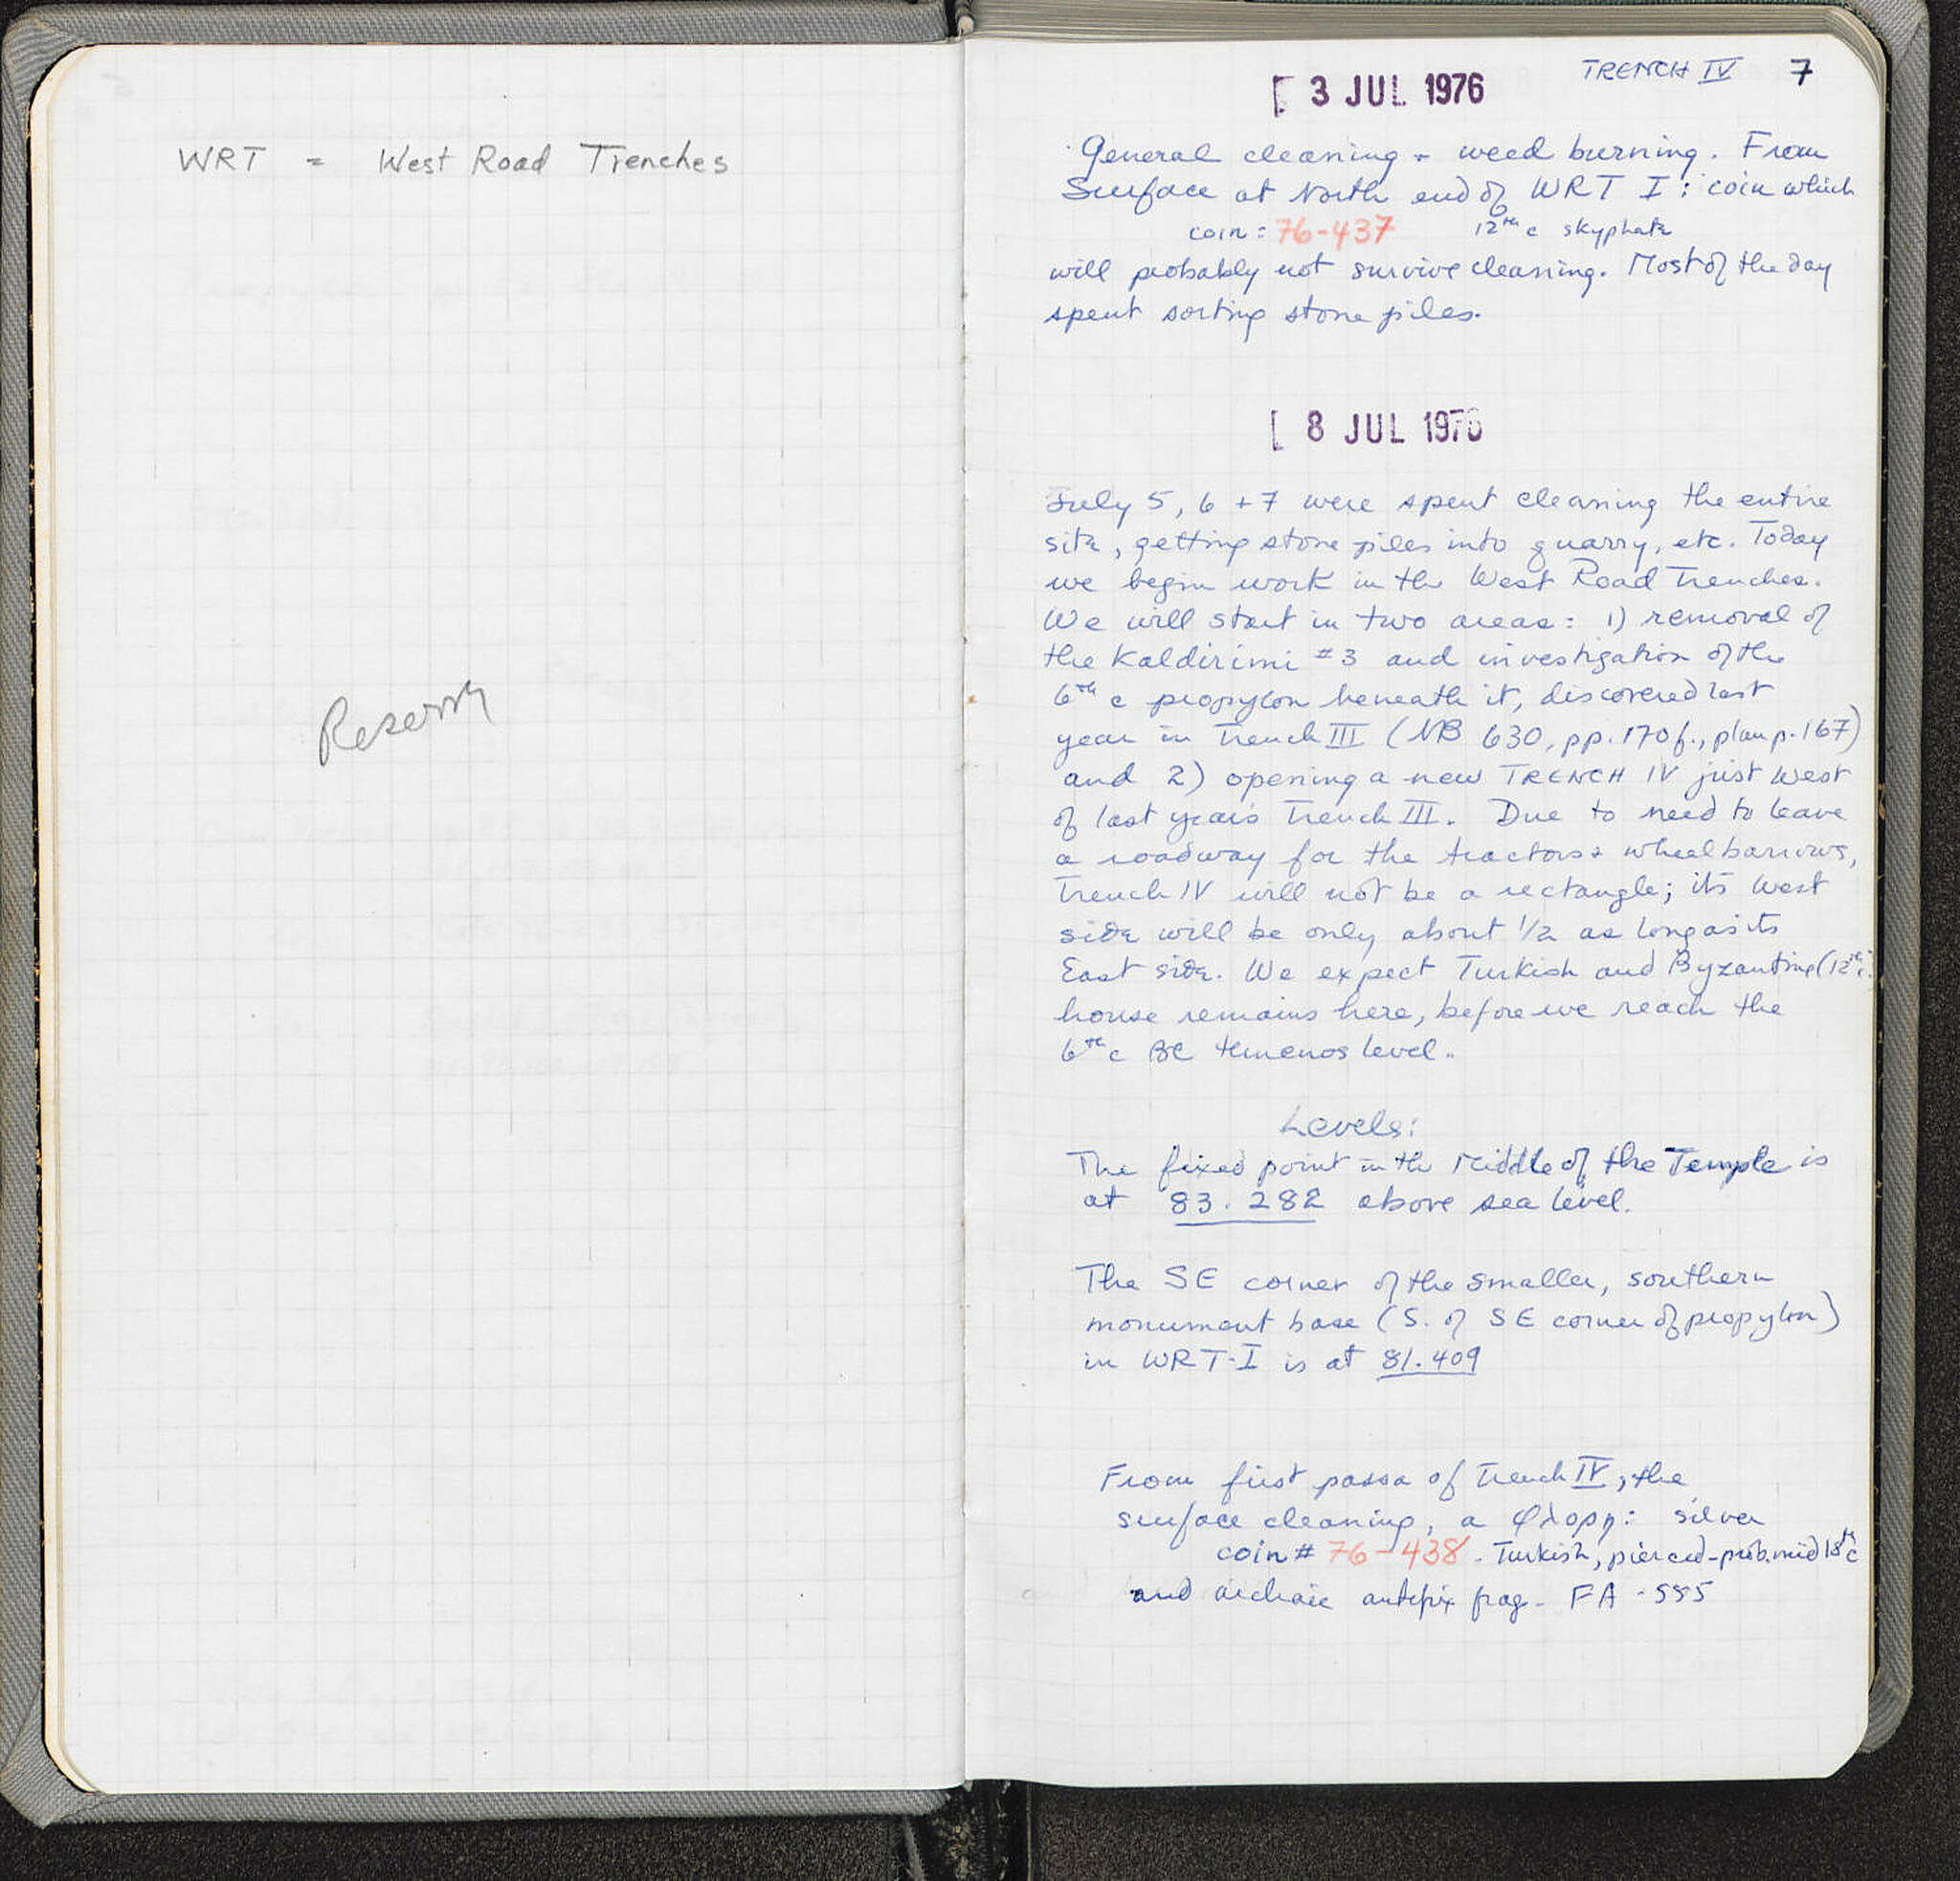 WRT = West Road Trenches
Reserve
TRENCH IV 7
3 JUL 1976
General cleaning + weed burning. From
Surface at North end of WRT I: coin which
coin = 76-437 12th c skyphate
will probably not survive cleaning. Most of the day
spent sorting stone piles.
8 JUL 1976
July 5, 6 + 7 were spent cleaning the entire
site, getting stone piles into quarry, etc. Today
we begin work in the West Road Trenches.
We will start in two areas: 1) removal of
the Kaldirimi #3 and investigation of the
6th c propylon beneath it, discovered last
year in Trench III (NB 630, pp. 170 f., plan p. 167)
and 2) opening a new TRENCH IV just West
of last year's Trench III. Due to need to leave
a roadway for the tractors + wheelbarrows,
Trench IV will not be a rectangle; its West
side will be only about 1/2 as long as its
East side. We expect Turkish and Byzantine (12th c.)
house remains here, before we reach the
6th c BC temenos level.
Levels:
The fixed point in the Middle of the Temple is
at 83.282 above sea level.
The SE corner of the smaller, southern
monument base (S. of SE corner of propylon)
in WRT-I is at 81.409
From first passa of Trench IV, the
surface cleaning, a φλορη: silver
coin # 76-438. Turkish, pierced - prob. mid 18th c
and archaic antefix frag - FA-555